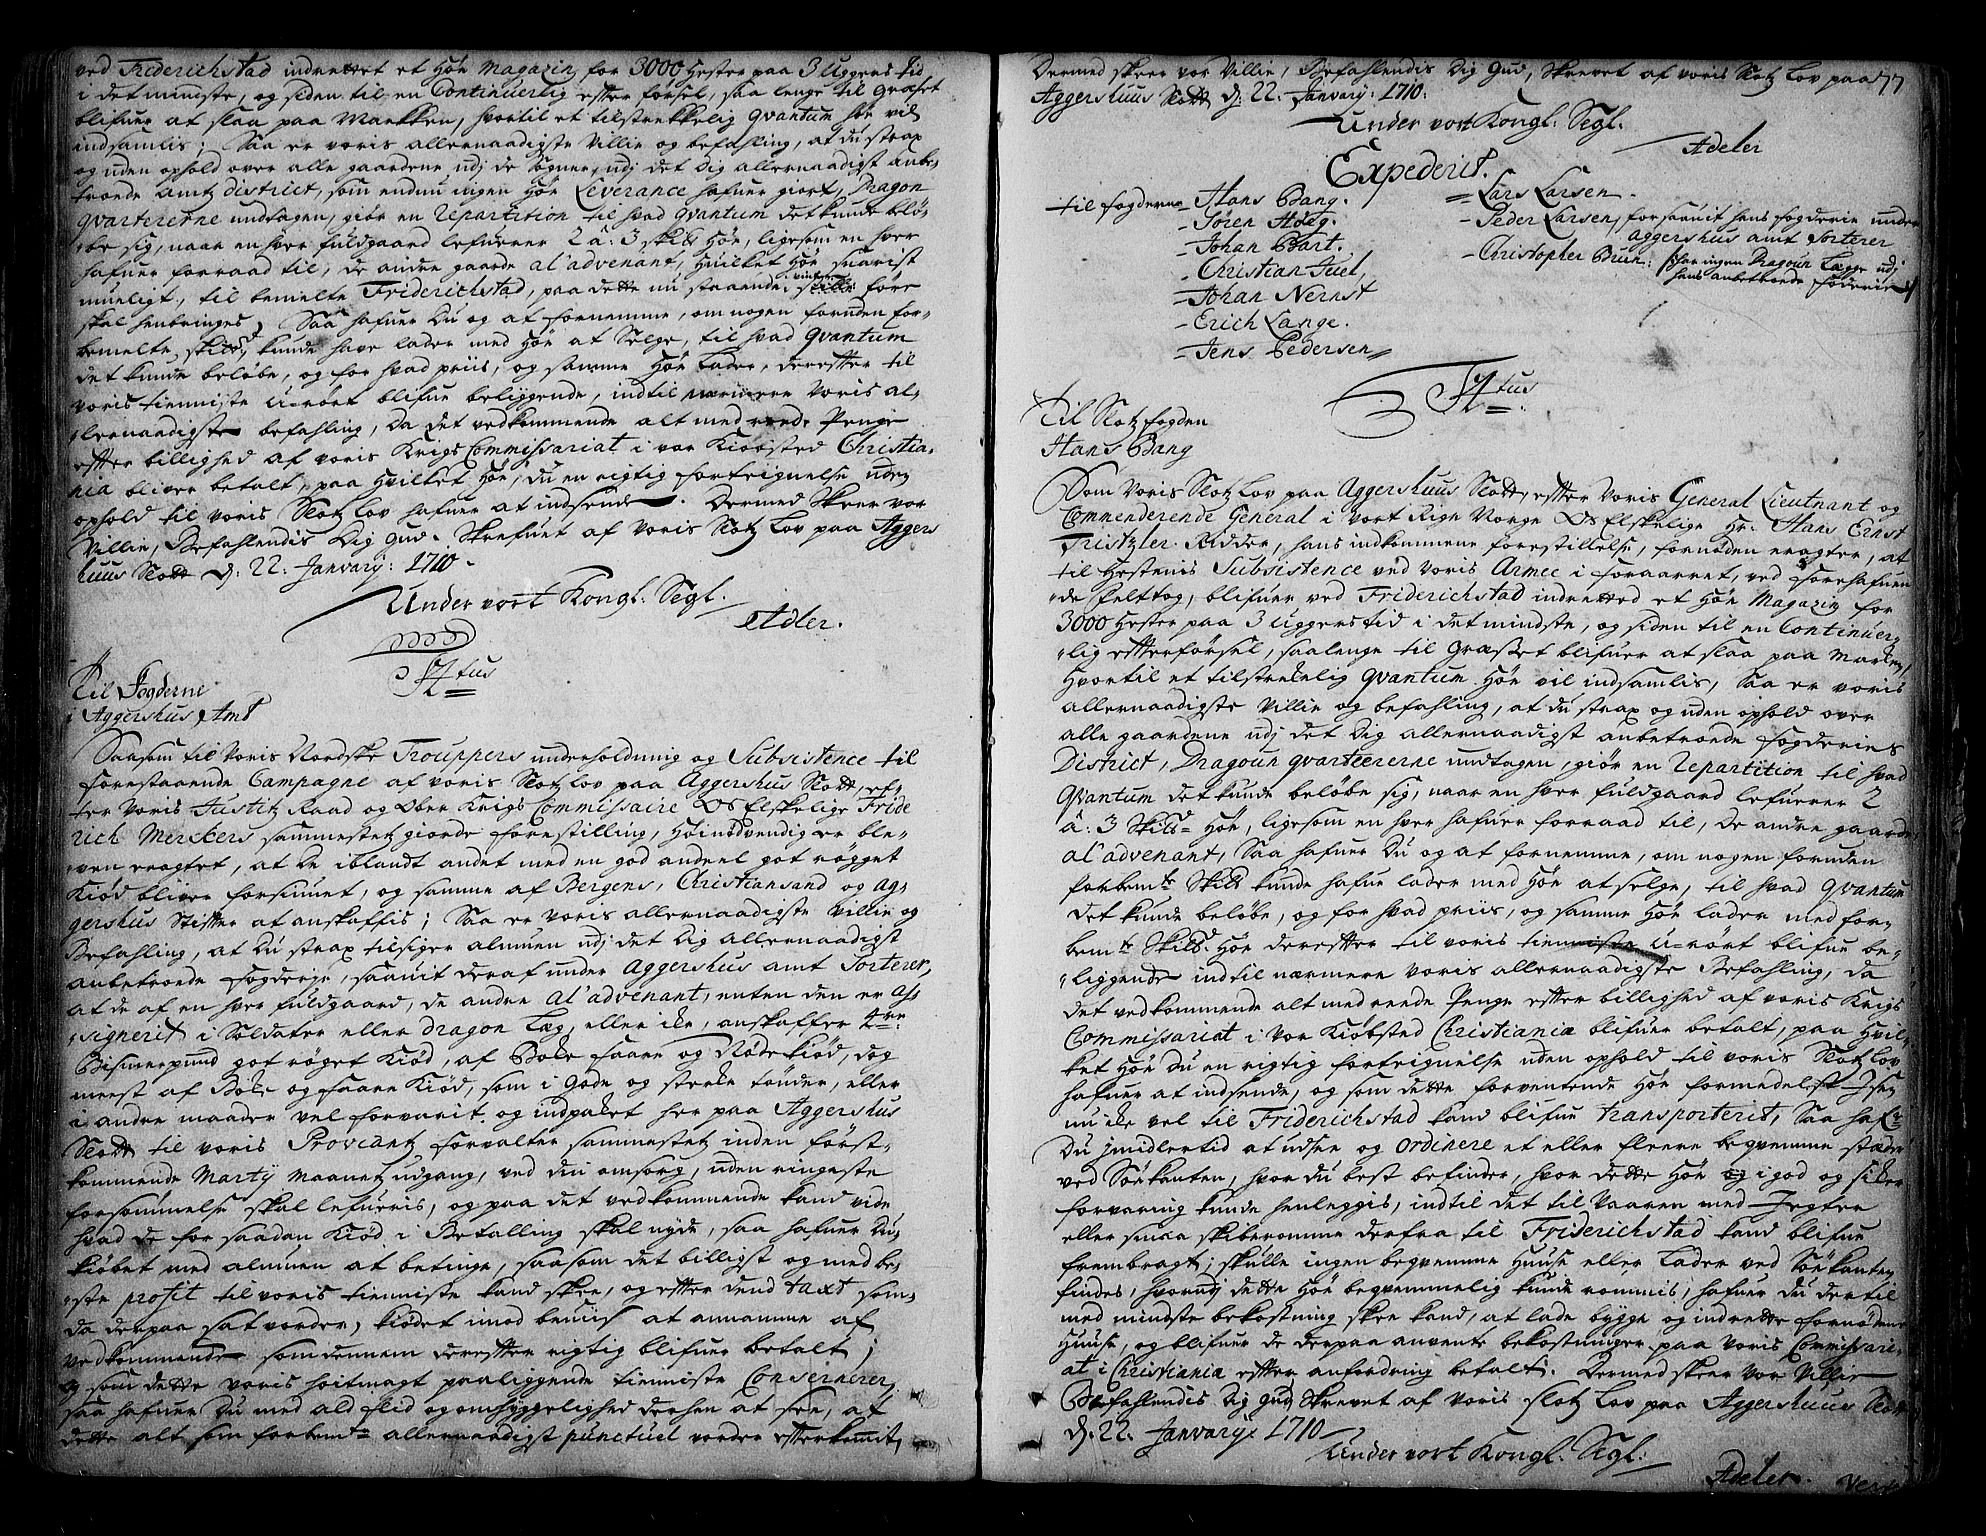 ved Friderichstad indrettet et Höe Magazin for 3000 Hester paa 3 Uggers tid
i det minste, og siden til en Continuerlig efterförsel, saa lenge til Græset
blifuer at slaa paa Markken, hvortil et tilstrekkelig qvantum höe vil
indsamlis; Saa er voris allernaadigste Villie og befahling, at du strax
og uden ophold over alle gaardene udj de Sogner, udj det Dig allernaadigst anbe-
troede Amtz District, som endnu ingen Höe Leverance hafuer giort, Dragon
qvartererne undtagen, giör en Repartition til hvad qvantum det kunde belö-
be sig, naar en hver fuldgaard lefuerer 2 â: 3 skild Höe, ligesom en hver
hafuer forraad til, de andre gaarde al'advenant, hvilket Höe snarist
mueligt, til bemelte Friderichstad, paa dette nu staaende vinter före
skal henbringes, Saa hafuer Du og at fornemme, om nogen foruden for-
bemelte skilld kunde have lader med Höe at Selge, til hvad qvantum
det kunde belöbe, og for hvad priis, og samme Höe Lader, derefter til
voris tienniste u-rört blifue beliggende, indtil nærmere Voris al-
lernaadigste befahling, Da det vedkommende alt med reede Penge
efter billighed af voris Krigs Commissariat i vor Kiöbsted Christia-
nia bliver betalt, paa hvilket Höe, du en rigtig fortegnelse uden
ophold til voris Slotz Lov hafuer at indsende. Dermed Skeer vor
Villie, Befahlendis Dig Gud. Skrefuet af Voris Slotz Lov paa Aggers
huus Slott d: 22. January: 1710.
Under vort Kongl: Segl.
Adler.
Htus
Til Fogderne
i Aggershus Amt
Saasom til Voris Nordske Trouppers underholdning og Subsistence til
forestaaende Campagne af voris Slotz Lov paa Aggershus Slott, ef-
ter Voris Justitz Raad og Ober Krigs Commissaire Os Elskelige Fride
rich Merckers sammestetz giorde forestilling, höinödvendig er ble-
ven eragtet, at de iblandt andet med en god andeel got rögget
Kiöd bliver forsiunet, og samme af Bergens, Christiansand og Ag-
gershus Stifter at anskaffis; Saa er Voris allernaadigste Villie og
Befahling, at Du strax tilsiger almuen udj det Dig allernaadigst
anbetroede fogderje, saavit deraf under Aggershus amt Sorterer,
at de af en hver fuldgaard, de andre al'advenant, enten den er as-
signerit i Soldater eller Dragon Læg, eller icke, anskaffer
Bismerpund got röget Kiöd, af Boke faare og Nödekiöd, dog
meest af Boke og faare Kiöd, som i Gode og sterke tönder, eller
i andre maader vel forvarit og indpaket her paa Aggershus
Slott til voris Proviantz forvalter sammestetz inden först-
kommende Martij maanetz udgang, ved din omsorg, uden ringeste
forsömmelse skal lefueris, og paa det vedkommende kand vide
hvad de for saadan Kiöd i Betalling skal nyde, saa hafuer Du
kiöbet med almuen at betinge, saasom det billigst og med be-
ste profit til voris tienniste kand skee, og efter dend taxt som
da derpaa sat vorder, kiödet imod beviis at annamme af
vedkommende som dennem derefter rigtig blifuer betalt;
og som dette voris höitmagt paaliggende tienniste Conserverer,
saa hafuer Du med ald flid og omhyggelighed derhen at see, at
dette alt som forbemte allernaadigst punctuel vorder efterkomit,
77
Dermed skeer vor Villie, Befahlendis Dig Gud, Skrevet af voris Slotz Lov paa
Aggershuus Slott d: 22. January: 1710.
Under vort Kongl: Segl.
Adeler
Expederit.
til fogderne - Hans Bang.
- Sören
- Johan Bart.
- Christian Juel,
- Johan Nernst
- Erich Lange.
- Jens Pedersen
- Lars Larsen.
- Peder Larsen, forsauit hans fogderie under
Aggershus amt Sorterer
- Christopher Brun: har ingen Dragoun Lægge udj
hans anbetroede foderie
Htus
Til Slotz fogden
Hans Bang
Som Voris Slotz Lov paa Aggershuus Slott, efter Voris General Lieutnant og
Commenderende General i vort Rige Norge Os Elskelige Hr: Hans Ernst
Tristzler Ridder, hans indkommene forestillelse, fornöden eragter, at
til Hestenis Subsistence ved Voris Armee i foraarret, ved forrehafuen
de felttog, blifuer ved Friderichstad indretted et Höe Magazin for
3000 Hester paa 3 Uggers tid i det mindste, og siden til en Continuer
lig efterförsel, saalenge til Græsset blifuer at slaa paa Marken,
Hvortil et tilstrekelig qvantum Höe vil indsamlis, Saa er voris
allernaadigste Villie og befahling, at du strax og uden ophold over
alle gaardene udj det Dig allernaadigst anbetroede fogderies
District, Dragoun qvarteererne undtagen, giör en Repartition til hvad
Qvantum det kunde belöbe sig, naar en hver fuldgaard lefuerer 2
â: 3 Skild Höe, ligesom en hver hafuer forraad til, De andre gaarde
al'advenant, Saa hafuer Du og at fornemme, om nogen foruden
forbemte Skild kunde hafue lader med Höe at selge, til hvad qvantum
det kunde belöbe, og for hvad priis, og samme Höe lader med for-
bemte Skild Höe derefter til voris tienniste u-rört blifue be-
liggende indtil nærmere Voris allernaadigste Befahling, da
det vedkommende alt med reede Penge efter billighed af voris Krigs
Commissariat i Vor Kiöbsted Christiania blifuer betalt, paa hvil-
ket Höe Du en rigtig fortegnelse uden ophold til voris Slotz Lov
hafuer at indsende, og som dette forventende Höe formedelst Isen
nu icke vel til Friderichstad kand blifue transporterit, Saa hafr
Du imidlertid at udsee og ordinere et eller fleere begvemme stæder
ved Söekanten, hvor du best befinder, hvor dette Höe i god og siker
forvaring kunde henleggis, indtil det til Vaaren med Jegter
eller smaa skiberomme derfra til Friderichstad kand blifue
frembragt; skulle ingen begvemme Huuse eller Lader ved Söekanten
findes, hvorudj dette Höe begvemmelig kunde rommis, hafuer Du dertil
med mindste bekostning skee kand, at lade bygge og indrette fornödene
Huuse, og blifuer de derpaa anvente bekostninger paa Voris Commissari-
at i Christiania efter anfordring betalt. Dermed skeer Vor Villie
Befahlendis Dig Gud, Skrevet af Voris Slotz Lov paa Aggershuus Slott
d: 22. January: 1710
Under vort Kongl: Segl:
Adeler.